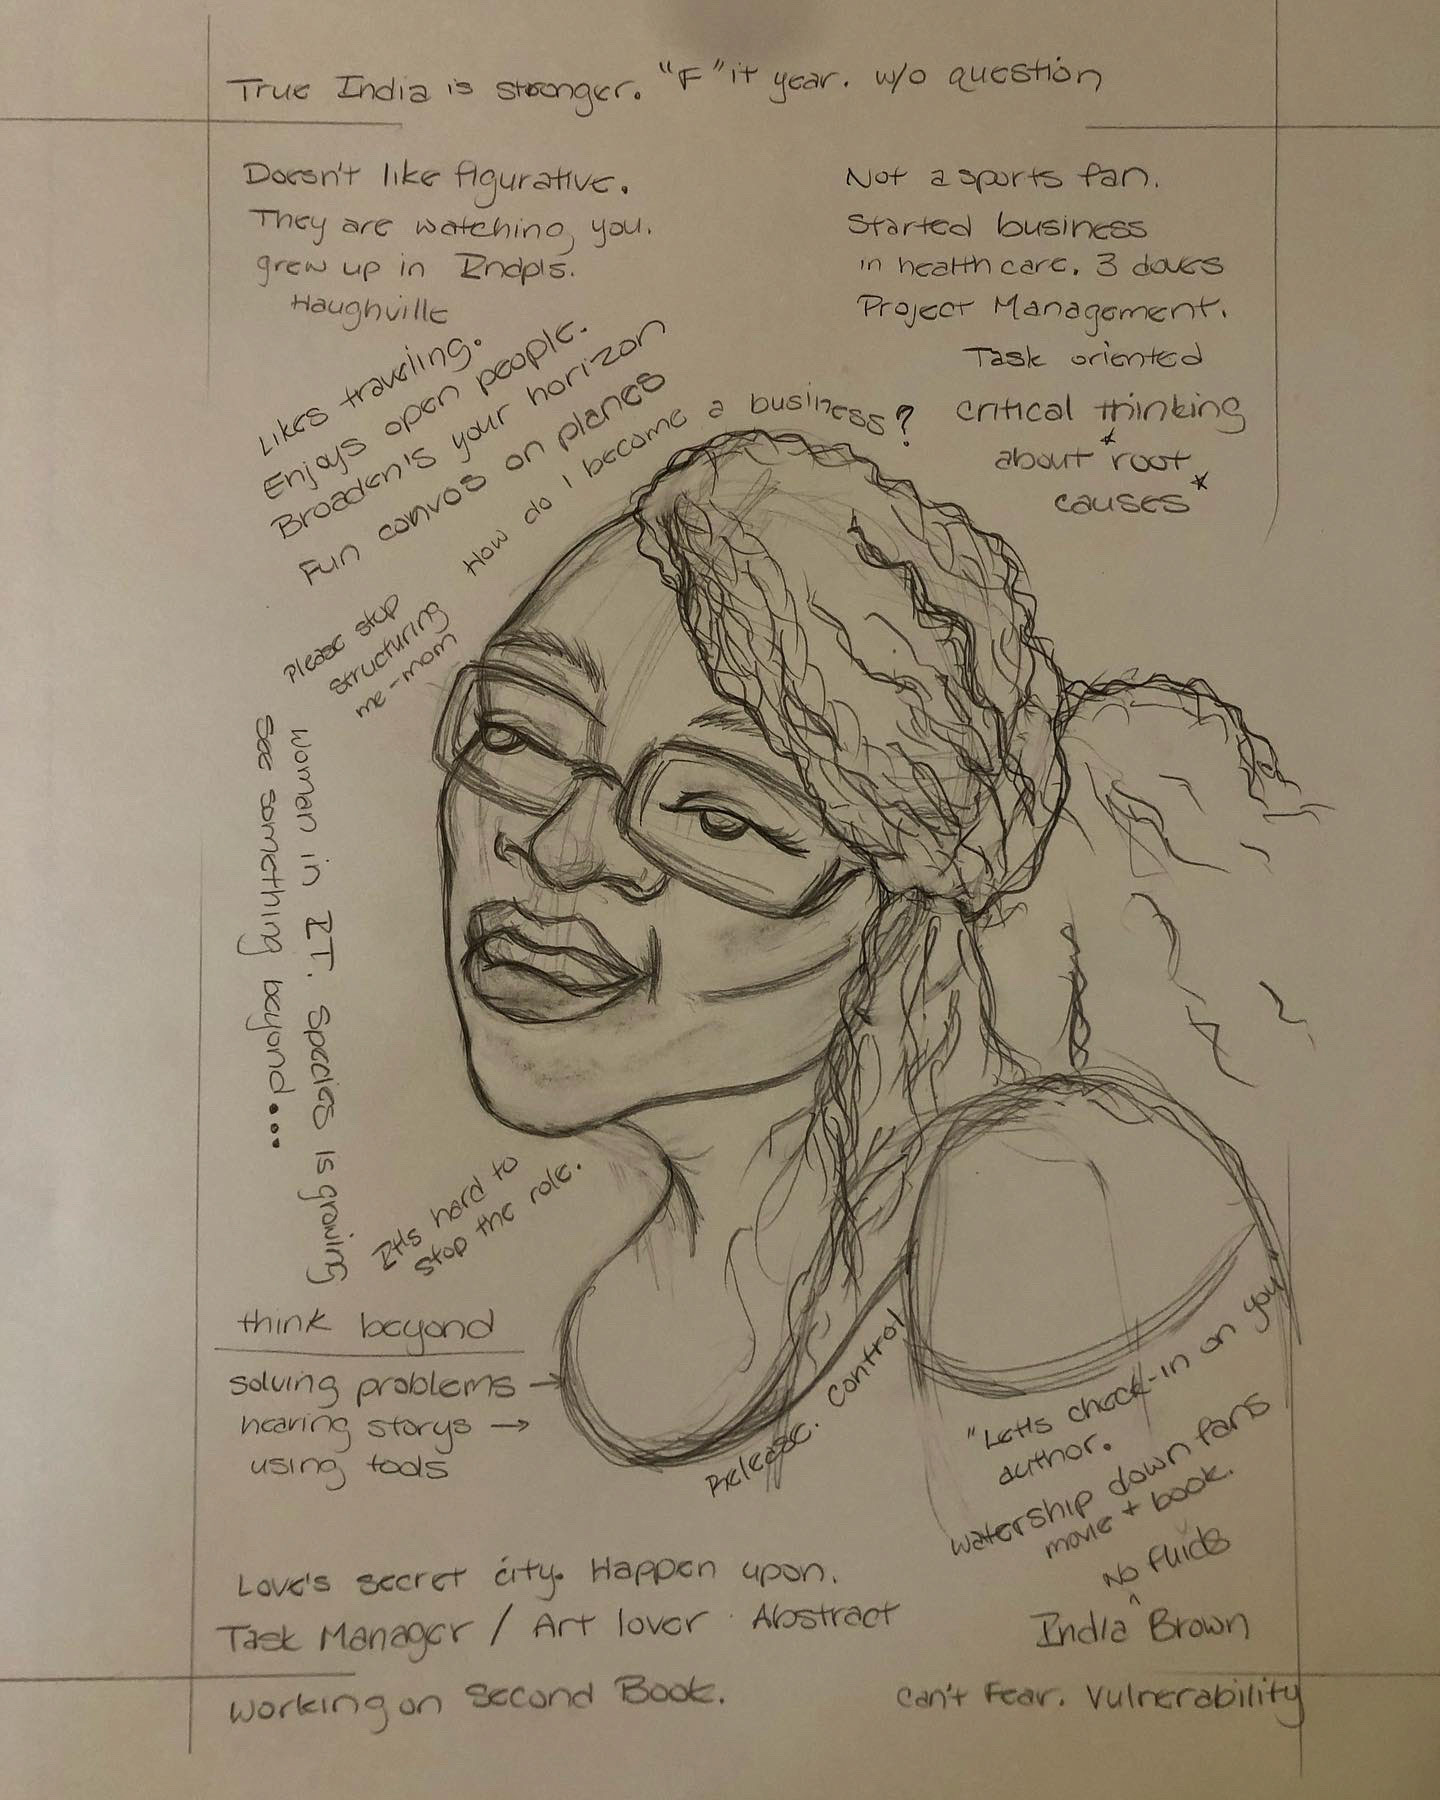 True India is stronger. "F" it year. w/o question
Doesn't like figurative.
They are watching you.
grew up in Indpls.
Haughville
Not a sports fan.
Started business
in health care. 3 doves
Project Management.
Task oriented
critical thinking
about *root
causes*
Likes traveling.
Enjoys open people.
Broaden's your horizon
Fun convos on planes
How do I become a business?
Please stop
structuring
me - mom
woman in I.T. Species is growing
see something beyond....
It's hard to
stop the role.
think beyond
solving problems →
hearing storys →
using tools
Release. control
"Let's check-in on you"
author.
watership down fans
movie + book.
No fluids
^
India Brown
Love's secret city. Happen upon.
Task Manager / Art lover . Abstract
working on second Book.
can't Fear. Vulnerability